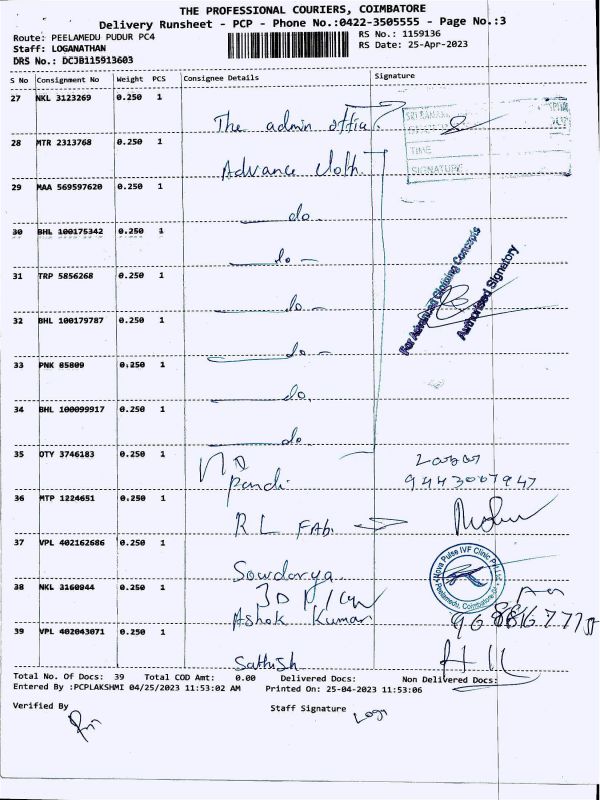 THE PROFESSIONAL COURIERS, COIMBATORE
Delivery Runsheet - PCP - Phone No.:0422-3505555 - Page No.:3
Route: PEELAMEDU PUDUR PC4
RS No.: 1159136
Staff: LOGANATHAN
RS Date: 25-Apr-2023
DRS No.: DCJB115913603
S No Consignment No Weight PCS Consignee Details Signature
27 NKL 3123269 0.250 1
The admin office
28 MTR 2313768 0.250 1
Advance Cloth
TIME
SIGNATURE
29 MAA 569597620 0.250 1
do
30 BHL 100175342 0.250 1
do
31 TRP 5856268 0.250 1
do
32 BHL 100179787 0.250 1
do
33 PNK 85809 0.250 1
do
34 BHL 100099917 0.250 1
do
For Advanced Cloning Concepts
Authorised Signatory
35 OTY 3746183 0.250 1
pandi
9443007947
36 MTP 1224651 0.250 1
R L FAb
37 VPL 402162686 0.250 1
Sowdarya
Nova Pulse IVF Clinic Pvt Ltd
Peelamedu, Coimbatore
38 NKL 3160944 0.250 1
Ashok Kumar
39 VPL 402043071 0.250 1
Sathish
Total No. Of Docs: 39 Total COD Amt: 0.00 Delivered Docs: Non Delivered Docs:
Entered By :PCPLAKSHMI 04/25/2023 11:53:02 AM Printed On: 25-04-2023 11:53:06
Verified By
Staff Signature
Logu